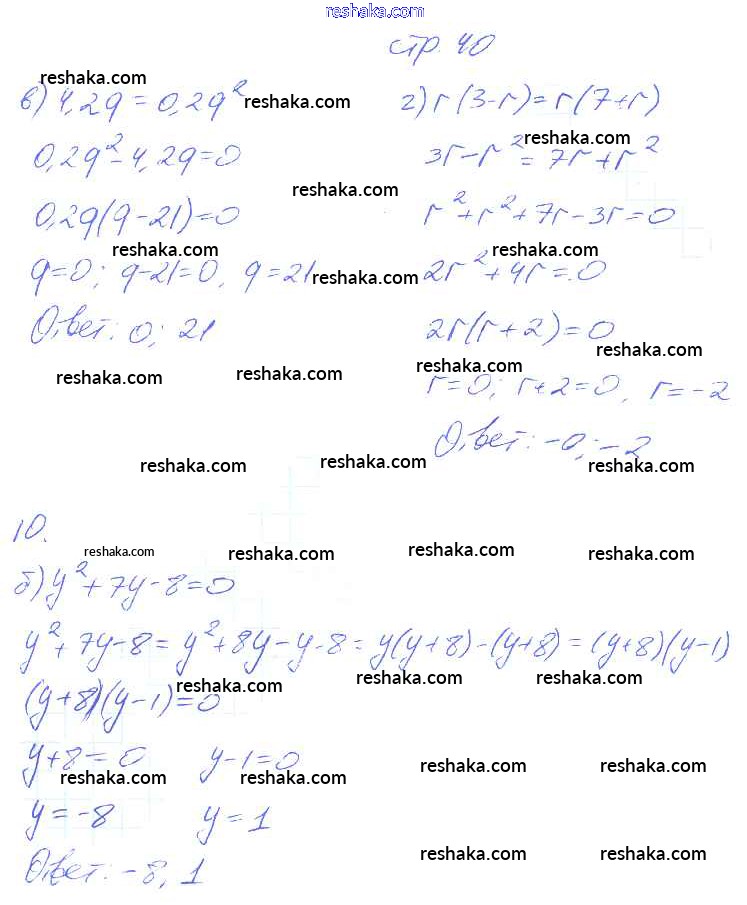 reshaka.com
стр. 40
reshaka.com
в) 4,2q = 0,2q² reshaka.com
0,2q² - 4,2q = 0
reshaka.com
0,2q(q - 21) = 0
reshaka.com
q = 0; q - 21 = 0, q = 21 reshaka.com
Ответ: 0; 21
reshaka.com reshaka.com
г) r(3 - r) = r(7 + r)
reshaka.com
3r - r² = 7r + r²
r² + r² + 7r - 3r = 0
reshaka.com
2r² + 4r = 0
2r(r + 2) = 0
reshaka.com
reshaka.com
r = 0; r + 2 = 0, r = -2
Ответ: -0; -2
reshaka.com reshaka.com reshaka.com
10.
reshaka.com reshaka.com reshaka.com reshaka.com
б) y² + 7y - 8 = 0
y² + 7y - 8 = y² + 8y - y - 8 = y(y + 8) - (y + 8) = (y + 8)(y - 1)
reshaka.com reshaka.com reshaka.com
(y + 8)(y - 1) = 0
y + 8 = 0 y - 1 = 0
reshaka.com reshaka.com reshaka.com reshaka.com
y = -8 y = 1
reshaka.com reshaka.com
Ответ: -8, 1